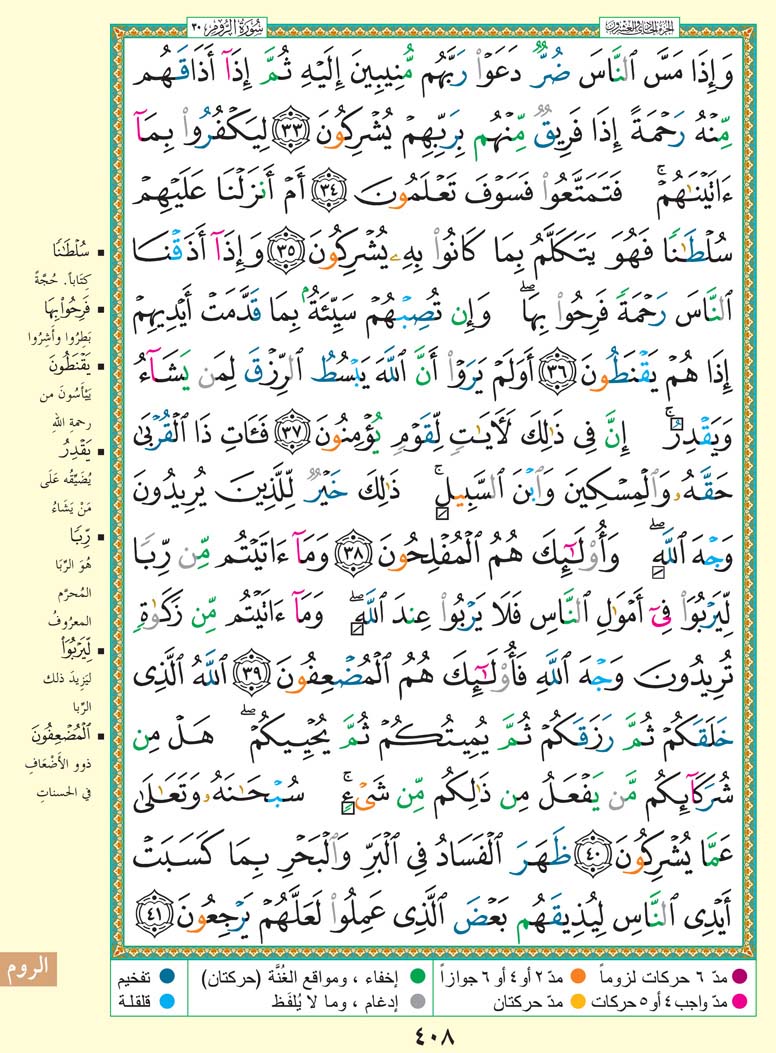 سُورَةُ الرُّومِ ٣٠
الجزء الحادي والعشرون
وَإِذَا مَسَّ ٱلنَّاسَ ضُرٌّ دَعَوْا۟ رَبَّهُم مُّنِيبِينَ إِلَيْهِ ثُمَّ إِذَآ أَذَاقَهُم
مِّنْهُ رَحْمَةً إِذَا فَرِيقٌ مِّنْهُم بِرَبِّهِمْ يُشْرِكُونَ ٣٣ لِيَكْفُرُوا۟ بِمَآ
ءَاتَيْنَٰهُمْ ۚ فَتَمَتَّعُوا۟ فَسَوْفَ تَعْلَمُونَ ٣٤ أَمْ أَنزَلْنَا عَلَيْهِمْ
سُلْطَٰنًا فَهُوَ يَتَكَلَّمُ بِمَا كَانُوا۟ بِهِۦ يُشْرِكُونَ ٣٥ وَإِذَآ أَذَقْنَا
ٱلنَّاسَ رَحْمَةً فَرِحُوا۟ بِهَا ۖ وَإِن تُصِبْهُمْ سَيِّئَةٌۢ بِمَا قَدَّمَتْ أَيْدِيهِمْ
إِذَا هُمْ يَقْنَطُونَ ٣٦ أَوَلَمْ يَرَوْا۟ أَنَّ ٱللَّهَ يَبْسُطُ ٱلرِّزْقَ لِمَن يَشَآءُ
وَيَقْدِرُ ۚ إِنَّ فِى ذَٰلِكَ لَءَايَٰتٍ لِّقَوْمٍ يُؤْمِنُونَ ٣٧ فَـَٔاتِ ذَا ٱلْقُرْبَىٰ
حَقَّهُۥ وَٱلْمِسْكِينَ وَٱبْنَ ٱلسَّبِيلِ ۚ ذَٰلِكَ خَيْرٌ لِّلَّذِينَ يُرِيدُونَ
وَجْهَ ٱللَّهِ ۖ وَأُو۟لَٰٓئِكَ هُمُ ٱلْمُفْلِحُونَ ٣٨ وَمَآ ءَاتَيْتُم مِّن رِّبًا
لِّيَرْبُوَا۟ فِىٓ أَمْوَٰلِ ٱلنَّاسِ فَلَا يَرْبُوا۟ عِندَ ٱللَّهِ ۖ وَمَآ ءَاتَيْتُم مِّن زَكَوٰةٍ
تُرِيدُونَ وَجْهَ ٱللَّهِ فَأُو۟لَٰٓئِكَ هُمُ ٱلْمُضْعِفُونَ ٣٩ ٱللَّهُ ٱلَّذِى
خَلَقَكُمْ ثُمَّ رَزَقَكُمْ ثُمَّ يُمِيتُكُمْ ثُمَّ يُحْيِيكُمْ ۖ هَلْ مِن
شُرَكَآئِكُم مَّن يَفْعَلُ مِن ذَٰلِكُم مِّن شَىْءٍ ۚ سُبْحَٰنَهُۥ وَتَعَٰلَىٰ
عَمَّا يُشْرِكُونَ ٤٠ ظَهَرَ ٱلْفَسَادُ فِى ٱلْبَرِّ وَٱلْبَحْرِ بِمَا كَسَبَتْ
أَيْدِى ٱلنَّاسِ لِيُذِيقَهُم بَعْضَ ٱلَّذِى عَمِلُوا۟ لَعَلَّهُمْ يَرْجِعُونَ ٤١
▪ سُلْطَٰنًا
كِتَاباً. حُجَّةً
▪ فَرِحُوا۟ بِهَا
بَطِرُوا وأَشِرُوا
▪ يَقْنَطُونَ
يَيْأَسُونَ من
رحمةِ اللهِ
▪ يَقْدِرُ
يُضَيِّقُه عَلَى
مَنْ يَشَاءُ
▪ رِّبًا
هُوَ الرِّبَا
المُحرَّم
المعروُفُ
▪ لِّيَرْبُوَا۟
ليَزِيدَ ذلك
الرِّبا
▪ ٱلْمُضْعِفُونَ
ذوو الأَضْعَافِ
في الحسناتِ
الروم
مدّ ٦ حركات لزوماً
مدّ ٢ أو ٤ أو ٦ جوازاً
إخفاء ، ومواقع الغُنَّة (حركتان)
تفخيم
مدّ واجب ٤ أو ٥ حركات
مدّ حركتان
إدغام ، وما لا يُلفَظ
قلقلة
٤٠٨